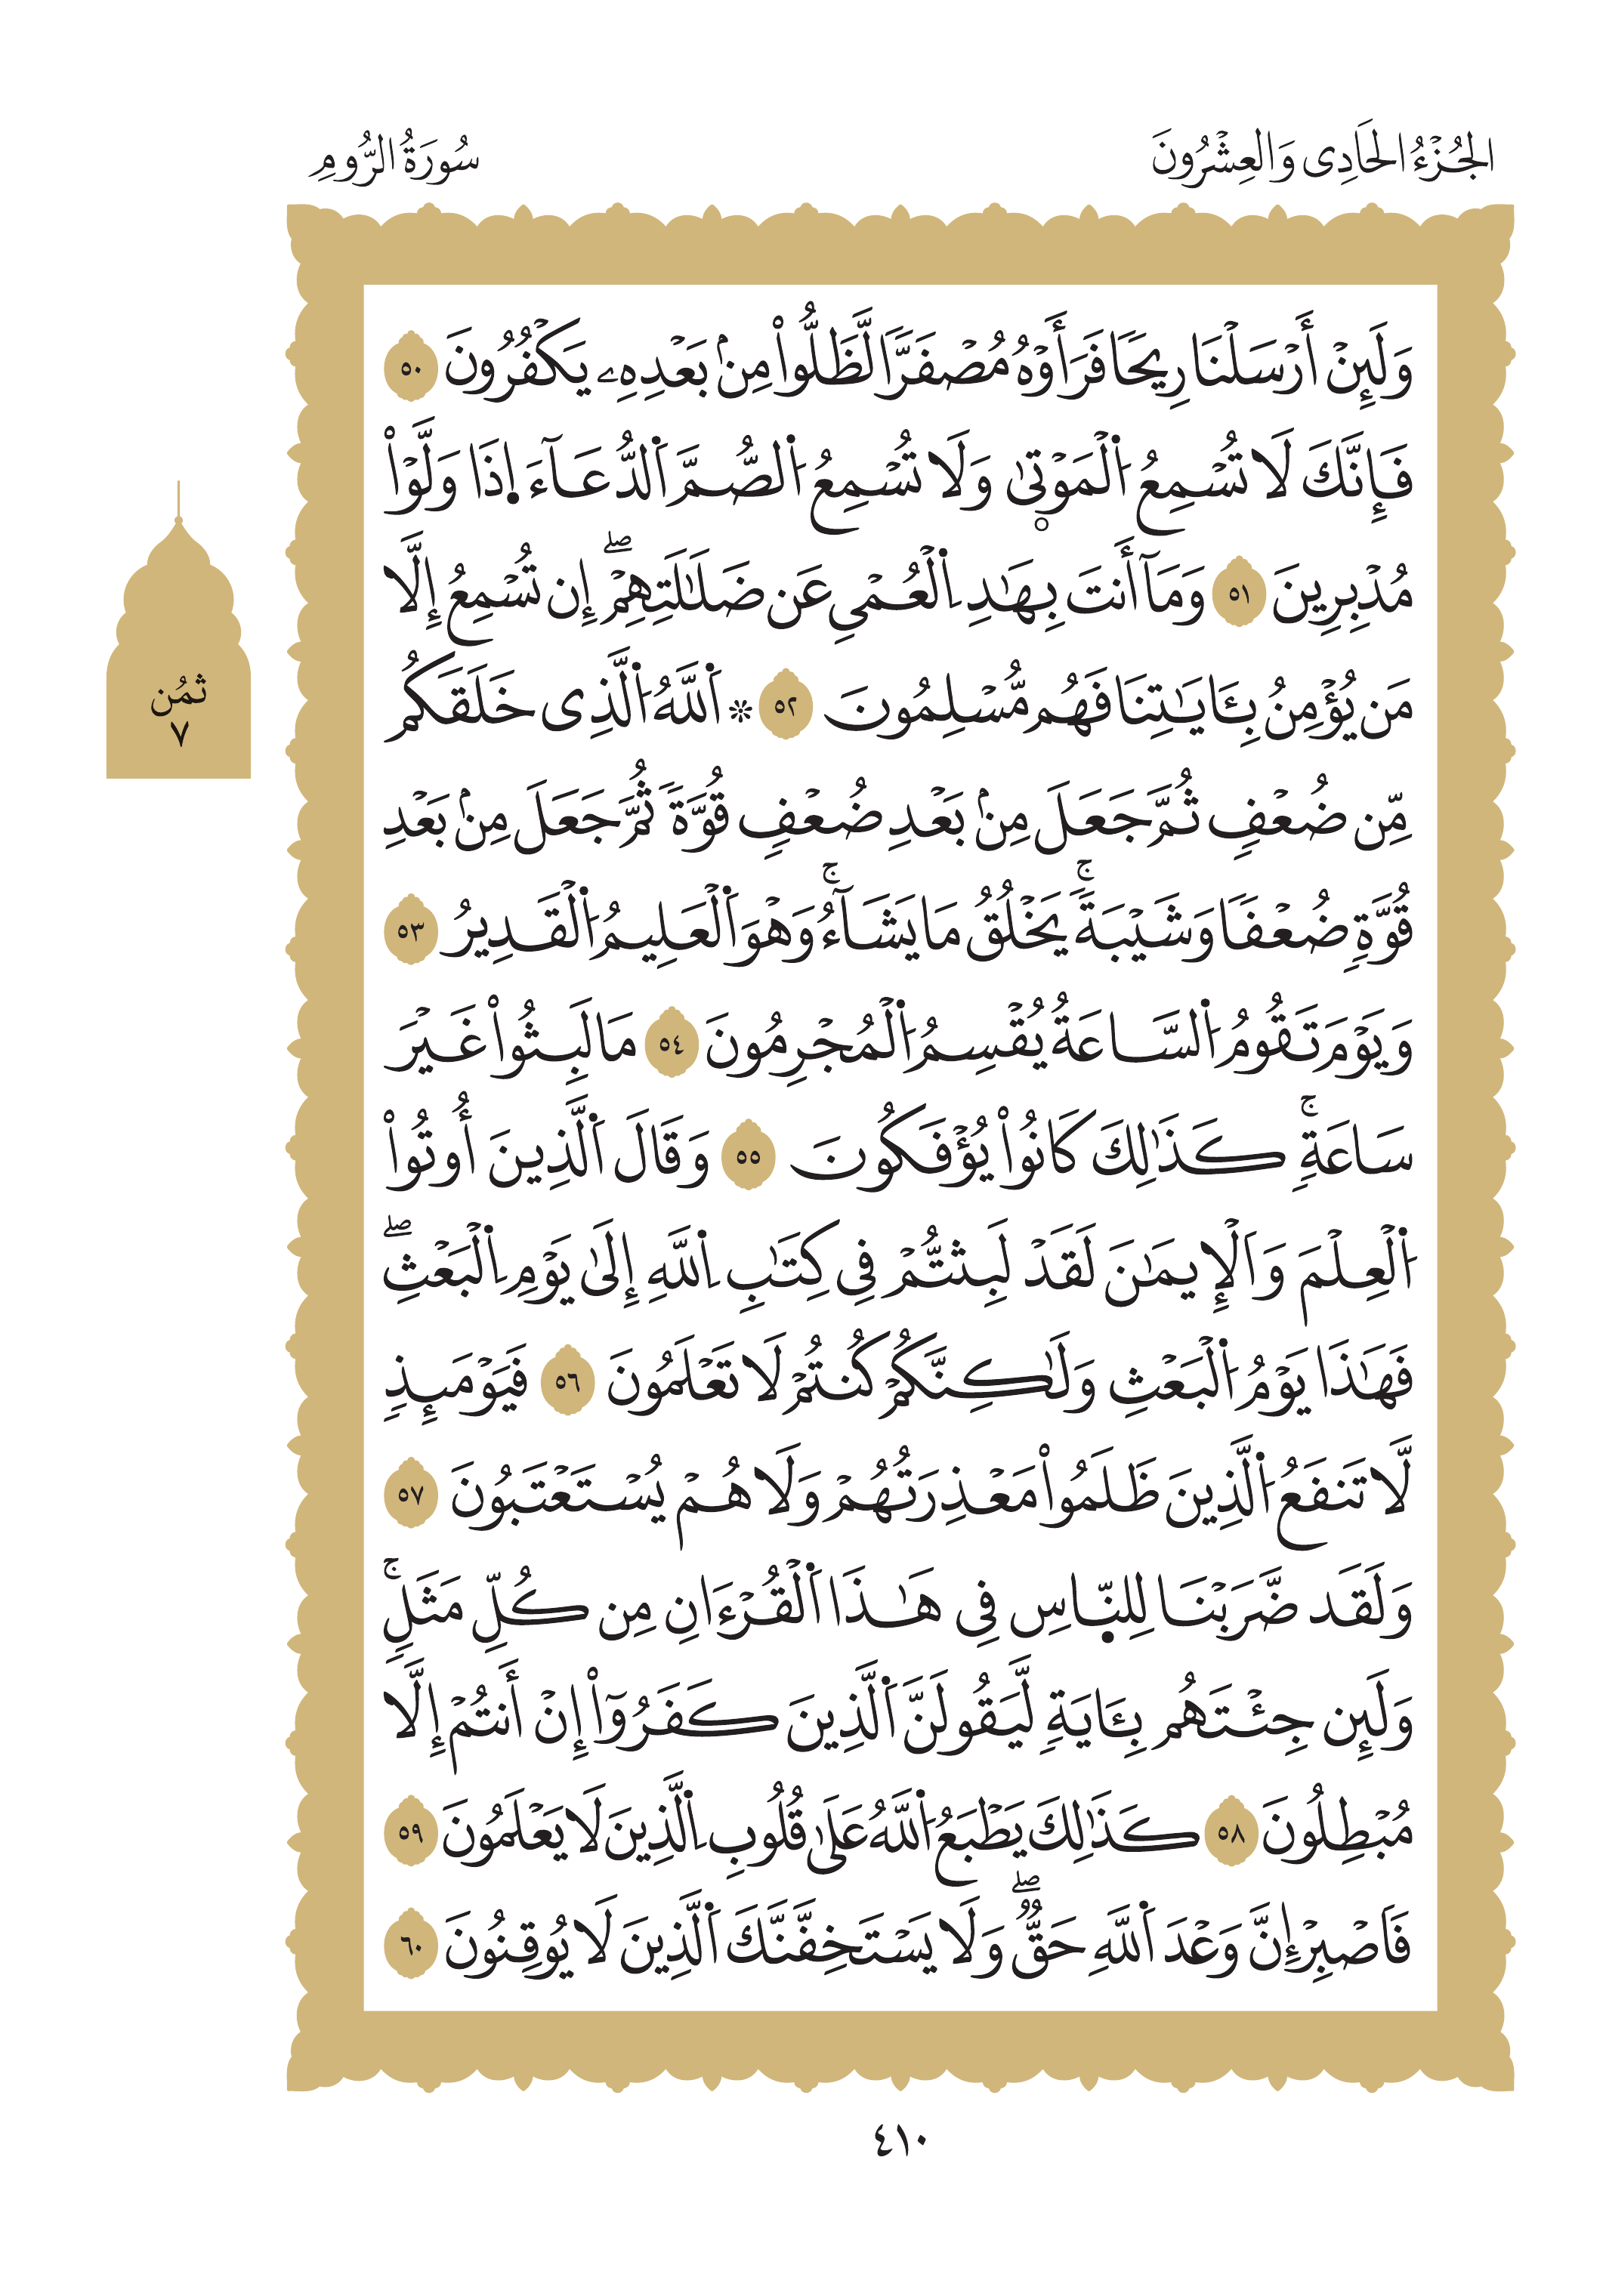 الجُزْءُ الحَادِى وَالعِشْرُونَ
سُورَةُ الرُّومِ
وَلَئِنْ أَرْسَلْنَا رِيحًا فَرَأَوْهُ مُصْفَرًّا لَّظَلُّواْ مِنۢ بَعْدِهِۦ يَكْفُرُونَ ٥٠
فَإِنَّكَ لَا تُسْمِعُ اُ۬لْمَوْت۪ىٰ وَلَا تُسْمِعُ اُ۬لصُّمَّ اَ۬لدُّعَآءَ ا۪ذَا وَلَّوْاْ
مُدْبِرِينَ ٥١ وَمَآ أَنتَ بِهَٰدِ اِ۬لْعُمْيِ عَن ضَلَٰلَتِهِمْۖ إِن تُسْمِعُ إِلَّا
مَن يُؤْمِنُ بِـَٔايَٰتِنَا فَهُم مُّسْلِمُونَ ٥٢ ۞ اَ۬للَّهُ اُ۬لَّذِى خَلَقَكُم
مِّن ضُعْفٍ ثُمَّ جَعَلَ مِنۢ بَعْدِ ضُعْفٍ قُوَّةً ثُمَّ جَعَلَ مِنۢ بَعْدِ
قُوَّةٍ ضُعْفًا وَشَيْبَةًۚ يَخْلُقُ مَا يَشَآءُۚ وَهْوَ اَ۬لْعَلِيمُ اُ۬لْقَدِيرُ ٥٣
وَيَوْمَ تَقُومُ اُ۬لسَّاعَةُ يُقْسِمُ اُ۬لْمُجْرِمُونَ ٥٤ مَا لَبِثُواْ غَيْرَ
سَاعَةٍۚ كَذَٰلِكَ كَانُواْ يُؤْفَكُونَ ٥٥ وَقَالَ اَ۬لَّذِينَ أُوتُواْ
اُ۬لْعِلْمَ وَالْإِيمَٰنَ لَقَدْ لَبِثتُّمْ فِى كِتَٰبِ اِ۬للَّهِ إِلَىٰ يَوْمِ اِ۬لْبَعْثِۖ
فَهَٰذَا يَوْمُ اُ۬لْبَعْثِ وَلَٰكِنَّكُمْ كُنتُمْ لَا تَعْلَمُونَ ٥٦ فَيَوْمَئِذٍ
لَّا تَنفَعُ اُ۬لَّذِينَ ظَلَمُواْ مَعْذِرَتُهُمْ وَلَا هُمْ يُسْتَعْتَبُونَ ٥٧
وَلَقَد ضَّرَبْنَا لِلنّ۪اسِ فِى هَٰذَا اَ۬لْقُرْءَانِ مِن كُلِّ مَثَلٍۚ
وَلَئِن جِئْتَهُم بِـَٔايَةٍ لَّيَقُولَنَّ اَ۬لَّذِينَ كَفَرُوٓاْ إِنْ أَنتُمْ إِلَّا
مُبْطِلُونَ ٥٨ كَذَٰلِكَ يَطْبَعُ اُ۬للَّهُ عَلَىٰ قُلُوبِ اِ۬لَّذِينَ لَا يَعْلَمُونَ ٥٩
فَاَصْبِرْ إِنَّ وَعْدَ اَ۬للَّهِ حَقٌّۖ وَلَا يَسْتَخِفَّنَّكَ اَ۬لَّذِينَ لَا يُوقِنُونَ ٦٠
ثُمُن
٧
٤١٠